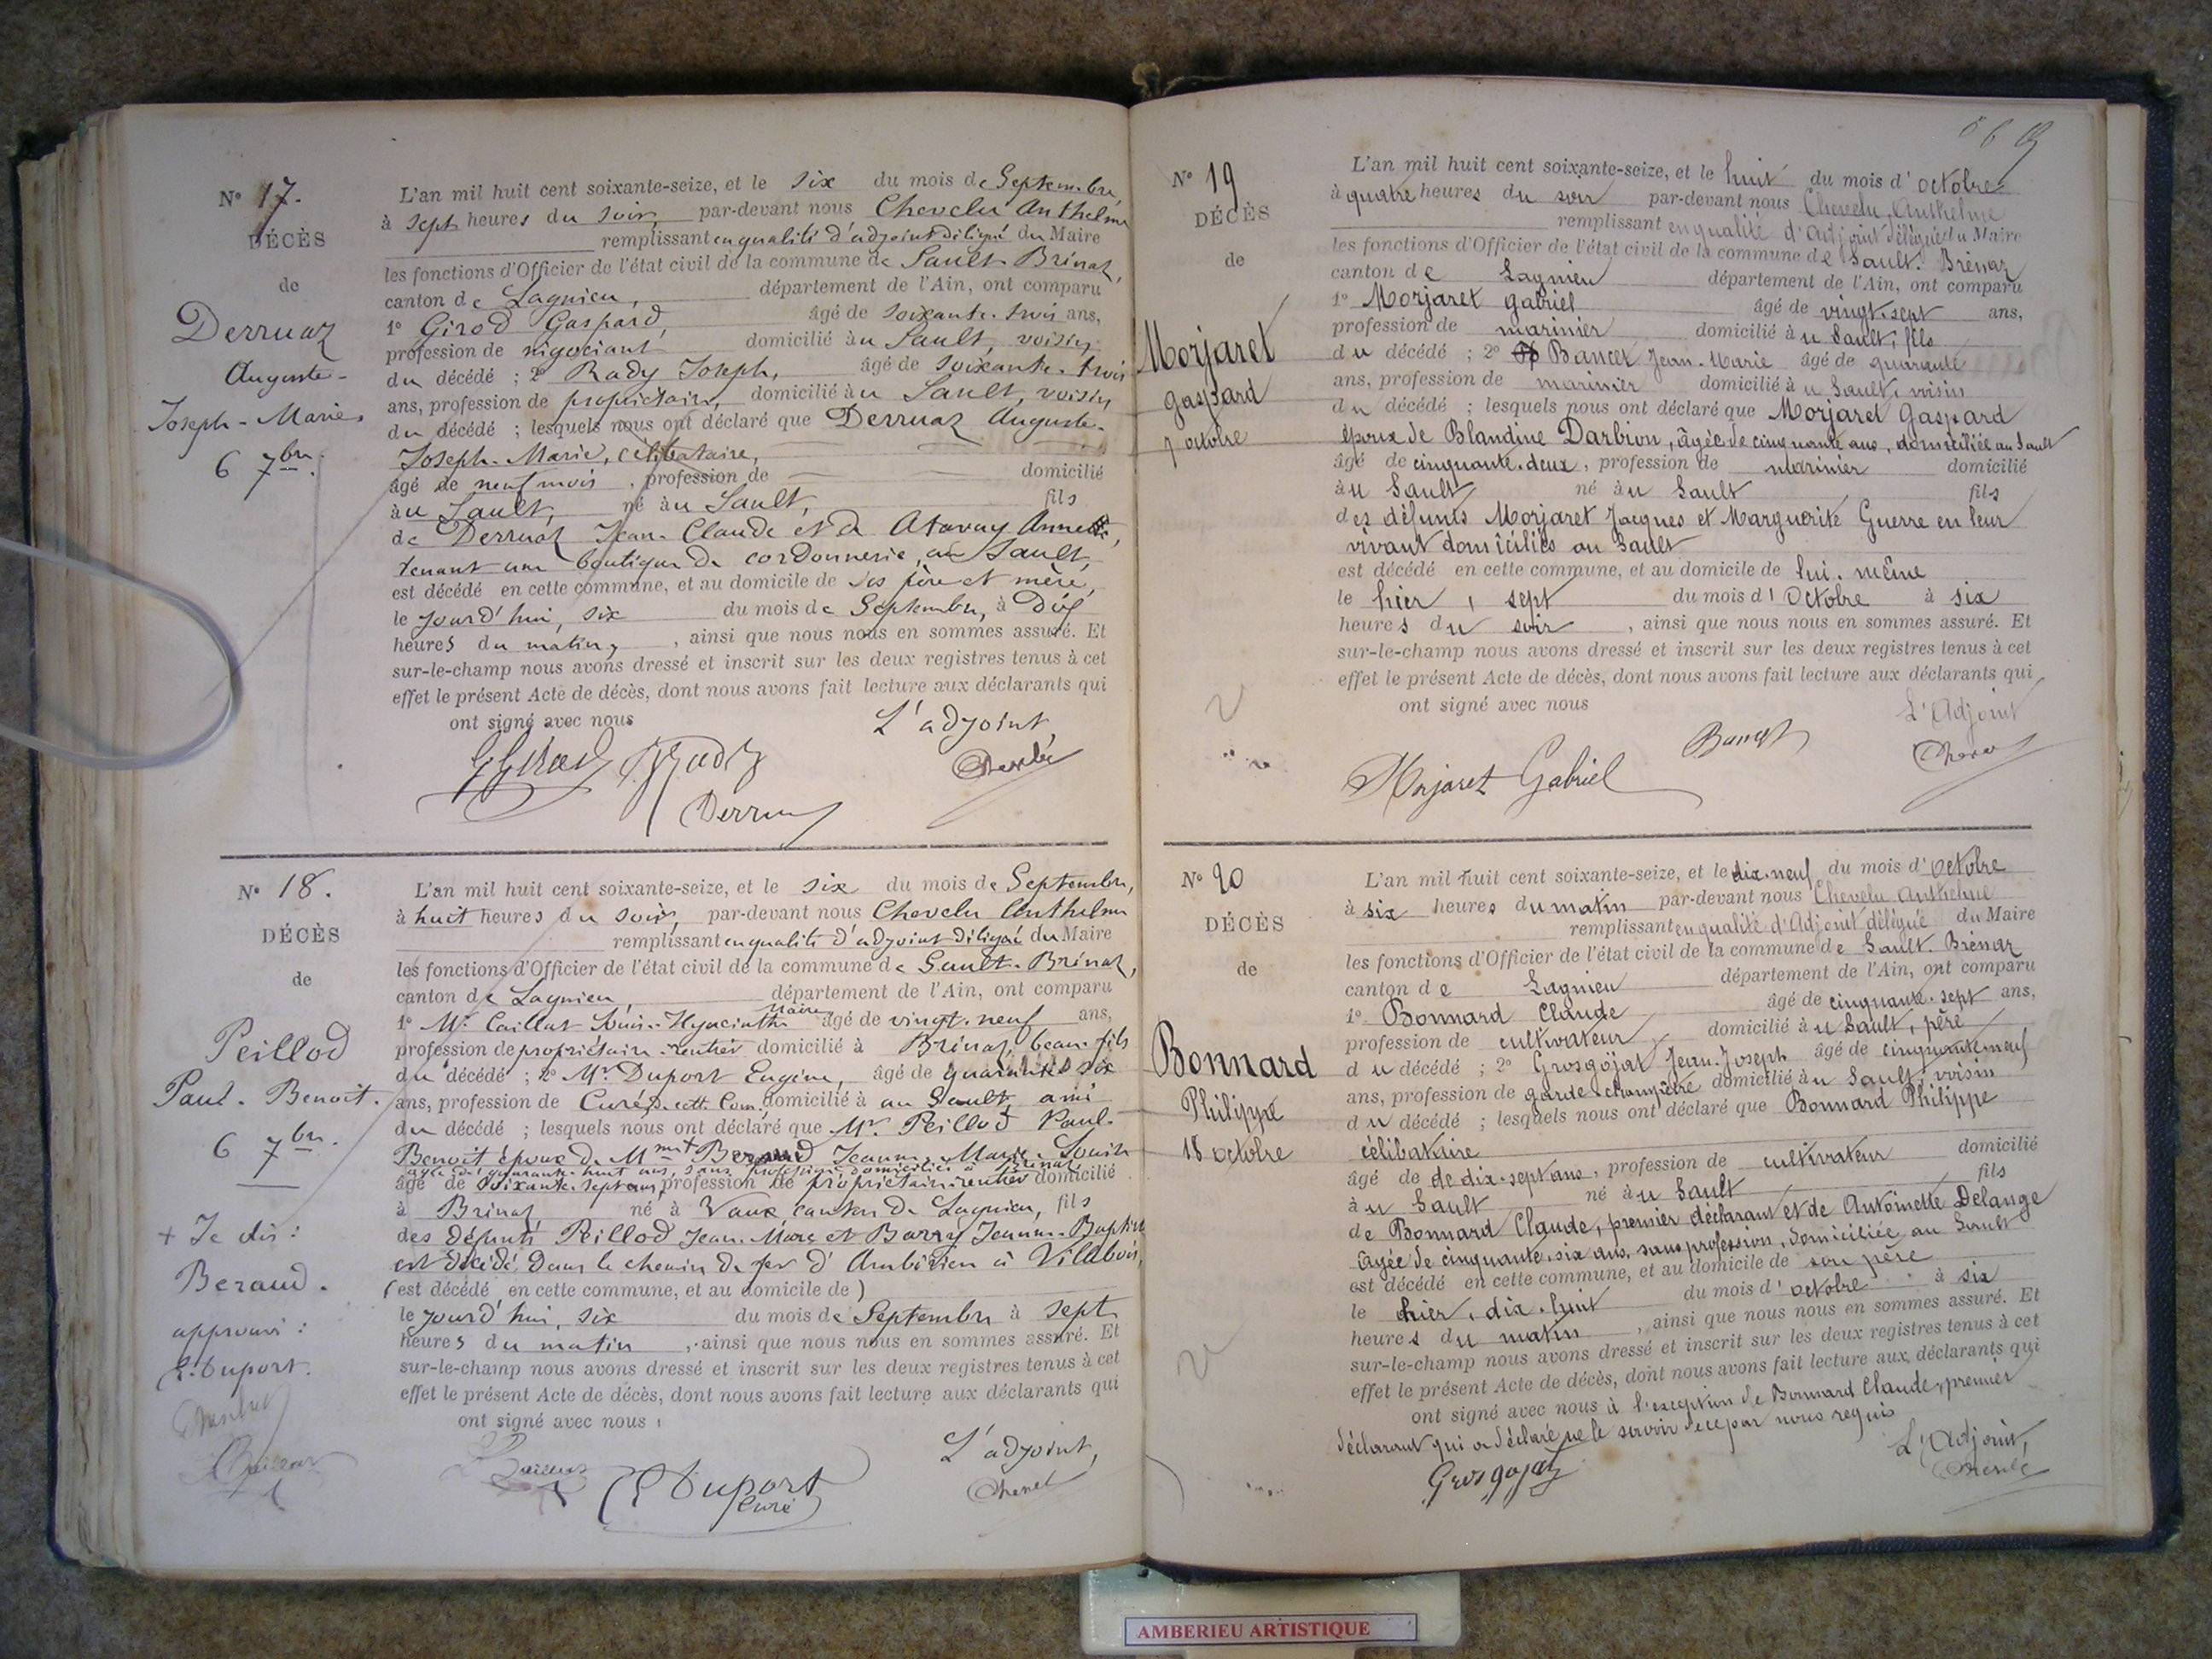 N° 17.
DÉCÈS
de
Derruaz
Auguste-
Joseph-Marie
6 7bre.
L'an mil huit cent soixante-seize, et le six du mois de Septembre,
à sept heures du soir, par-devant nous Chevelu Anthelme
remplissant en qualité d'adjoint délégué du Maire
les fonctions d'Officier de l'état civil de la commune de Sault-Brénaz,
canton de Lagnieu, département de l'Ain, ont comparu
1° Girod Gaspard, âgé de soixante-trois ans,
profession de négociant domicilié au Sault, voisin
du décédé ; 2° Rady Joseph, âgé de soixante-trois
ans, profession de propriétaire, domicilié au Sault, voisin
du décédé ; lesquels nous ont déclaré que Derruaz Auguste-
Joseph-Marie, célibataire,
âgé de neuf mois, profession de domicilié
au Sault, né au Sault, fils
de Derruaz Jean-Claude et d Atavay Annette,
tenant une boutique de cordonnerie, au Sault,
est décédé en cette commune, et au domicile de ses père et mère,
le jourd'hui, six du mois de Septembre, à dix
heures du matin, ainsi que nous nous en sommes assuré. Et
sur-le-champ nous avons dressé et inscrit sur les deux registres tenus à cet
effet le présent Acte de décès, dont nous avons fait lecture aux déclarants qui
ont signé avec nous
L'adjoint
N° 18.
DÉCÈS
de
Peillod
Paul-Benoit.
6 7bre.
+ Je dis :
Beraud.
approuvé :
E. Duport.
L'an mil huit cent soixante-seize, et le six du mois de Septembre,
à huit heures du soir, par-devant nous Chevelu Anthelme
remplissant en qualité d'adjoint délégué du Maire
les fonctions d'Officier de l'état civil de la commune de Sault-Brénaz,
canton de Lagnieu, département de l'Ain, ont comparu
Maire
1° Mr. Caillat Louis-Hyacinthe âgé de vingt-neuf ans,
profession de propriétaire-rentier domicilié à Brénaz, beau-fils
du décédé ; 2° Mr. Duport Eugène, âgé de quarante six
ans, profession de Curé domicilié à au Sault, ami
du décédé ; lesquels nous ont déclaré que Mr. Peillod Paul-
Benoit époux de Mme + Beraud Jeanne-Marie-Louise
âgée de quarante-huit ans, sans profession domiciliée à Brénaz
âgé de soixante-sept ans, profession de propriétaire-rentier domicilié
à Brénaz né à Vaux canton de Lagnieu, fils
des défunts Peillod Jean-Marc et Barry Jeanne-Baptiste
est décédé dans le chemin de fer d'Ambérieu à Villebois,
(est décédé en cette commune, et au domicile de )
le jourd'hui, six du mois de Septembre à sept
heures du matin, ainsi que nous nous en sommes assuré. Et
sur-le-champ nous avons dressé et inscrit sur les deux registres tenus à cet
effet le présent Acte de décès, dont nous avons fait lecture aux déclarants qui
ont signé avec nous
L'adjoint,
E Duport
Curé
N° 19
DÉCÈS
de
Morjaret
Gaspard
7 octobre
L'an mil huit cent soixante-seize, et le huit du mois d'octobre
à quatre heures du soir par-devant nous Chevelu Anthelme
remplissant en qualité d'Adjoint délégué du Maire
les fonctions d'Officier de l'état civil de la commune de Sault-Brénaz
canton de Lagnieu département de l'Ain, ont comparu
1° Morjaret Gabriel âgé de vingt-sept ans,
profession de marinier domicilié au Sault, fils
du décédé ; 2° Bancet Jean-Marie âgé de quarante
ans, profession de marinier domicilié au Sault, voisin
du décédé ; lesquels nous ont déclaré que Morjaret Gaspard
époux de Blandine Darbion, âgée de cinquante ans, domiciliée au Sault
âgé de cinquante-deux, profession de marinier domicilié
au Sault né au Sault fils
des défunts Morjaret Jacques et Marguerite Guerre en leur
vivant domiciliés au Sault
est décédé en cette commune, et au domicile de lui-même
le hier, sept du mois d'Octobre à six
heures du soir, ainsi que nous nous en sommes assuré. Et
sur-le-champ nous avons dressé et inscrit sur les deux registres tenus à cet
effet le présent Acte de décès, dont nous avons fait lecture aux déclarants qui
ont signé avec nous
L'Adjoint
Morjaret Gabriel
N° 20
DÉCÈS
de
Bonnard
Philippe
18 octobre
L'an mil huit cent soixante-seize, et le dix-neuf du mois d'octobre
à six heures du matin par-devant nous Chevelu Anthelme
remplissant en qualité d'Adjoint délégué du Maire
les fonctions d'Officier de l'état civil de la commune de Sault-Brénaz
canton de Lagnieu département de l'Ain, ont comparu
1° Bonnard Claude âgé de cinquante-sept ans,
profession de cultivateur domicilié au Sault, père
du décédé ; 2° Grosgojat Jean-Joseph âgé de cinquante neuf
ans, profession de garde champêtre domicilié au Sault, voisin
du décédé ; lesquels nous ont déclaré que Bonnard Philippe
célibataire
âgé de de dix-sept ans, profession de cultivateur domicilié
au Sault né au Sault fils
de Bonnard Claude, premier déclarant et de Antoinette Delange
âgée de cinquante-six ans, sans profession, domiciliée au Sault
est décédé en cette commune, et au domicile de son père
le hier, dix-huit du mois d'octobre à six
heures du matin, ainsi que nous nous en sommes assuré. Et
sur-le-champ nous avons dressé et inscrit sur les deux registres tenus à cet
effet le présent Acte de décès, dont nous avons fait lecture aux déclarants qui
ont signé avec nous à l'exception de Bonnard Claude, premier
déclarant qui a déclaré ne le savoir de ce par nous requis
L'Adjoint,
Grosgojat
AMBERIEU ARTISTIQUE